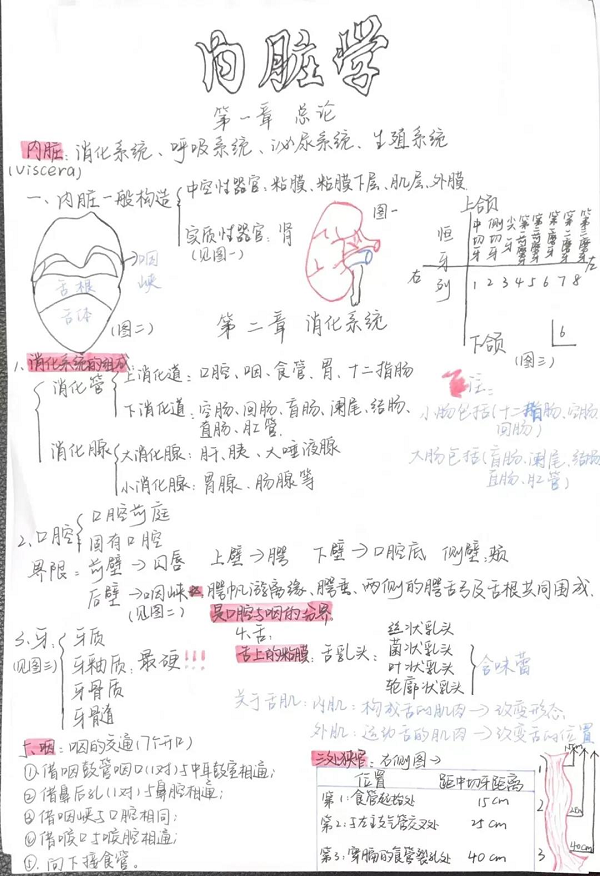 内脏学
第一章 总论
内脏:消化系统、呼吸系统、泌尿系统、生殖系统
(viscera)
一、内脏一般构造
中空性器官:粘膜、粘膜下层、肌层、外膜
实质性器官:肾
(见图一)
图一
上颌
恒牙列
中切牙
侧切牙
尖牙
第一前磨牙
第二前磨牙
第一磨牙
第二磨牙
第三磨牙
右
左
1 2 3 4 5 6 7 8
6
下颌
(图三)
咽峡
舌根
舌体
(图二)
第二章 消化系统
1、消化系统的组成
消化管
上消化道:口腔、咽、食管、胃、十二指肠
下消化道:空肠、回肠、盲肠、阑尾、结肠、
直肠、肛管.
消化腺
大消化腺:肝、胰、大唾液腺
小消化腺:胃腺、肠腺等
注:
小肠包括(十二指肠、空肠
回肠)
大肠包括(盲肠、阑尾、结肠
直肠、肛管)
2、口腔
口腔前庭
固有口腔
界限:前壁→口唇 上壁→腭 下壁→口腔底 侧壁:颊
后壁→咽峡 腭帆游离缘、腭垂、两侧的腭舌弓及舌根共同围成.
(见图二)
是口腔与咽的分界
3、牙:
(见图三)
牙质
牙釉质:最硬!!!
牙骨质
牙骨道
4、舌:
舌上的粘膜:舌乳头:
丝状乳头
菌状乳头
叶状乳头
轮廓状乳头
含味蕾
关于舌肌:内肌:构成舌的肌肉→改变形态
外肌:运动舌的肌肉→改变舌的位置
咽:咽的交通(7个开口)
①借咽鼓管咽口(1对)与中耳鼓室相通;
②借鼻后孔(1对)与鼻腔相通;
③借咽峡与口腔相同;
④借喉口与喉腔相通;
⑤.向下接食管。
三处狭窄:右侧图→
位置 距中切牙距离
第1:食管起始处 15cm
第2:与左主支气管交叉处 25cm
第3:穿膈的食管裂孔处 40cm
1
2
3
40cm